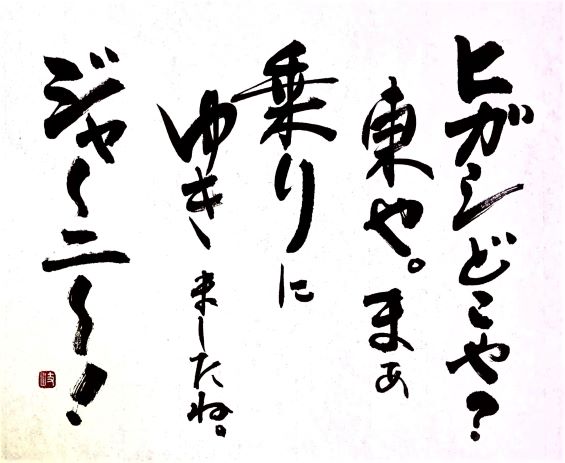 ヒガシどこや?
東や。まぁ
乗りに
ゆき ましたね。
ジャ〜ニ〜!